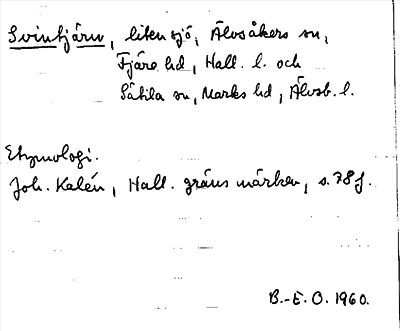 Svintjärn, liten sjö, Älvsåkers sn,
Fjäre hd, Hall. l. och
Sätila sn, Marks hd, Älvsb. l.
Etymologi.
Joh. Kalén, Hall. gräns märken, s. 78 f.
B.-E. O. 1960.